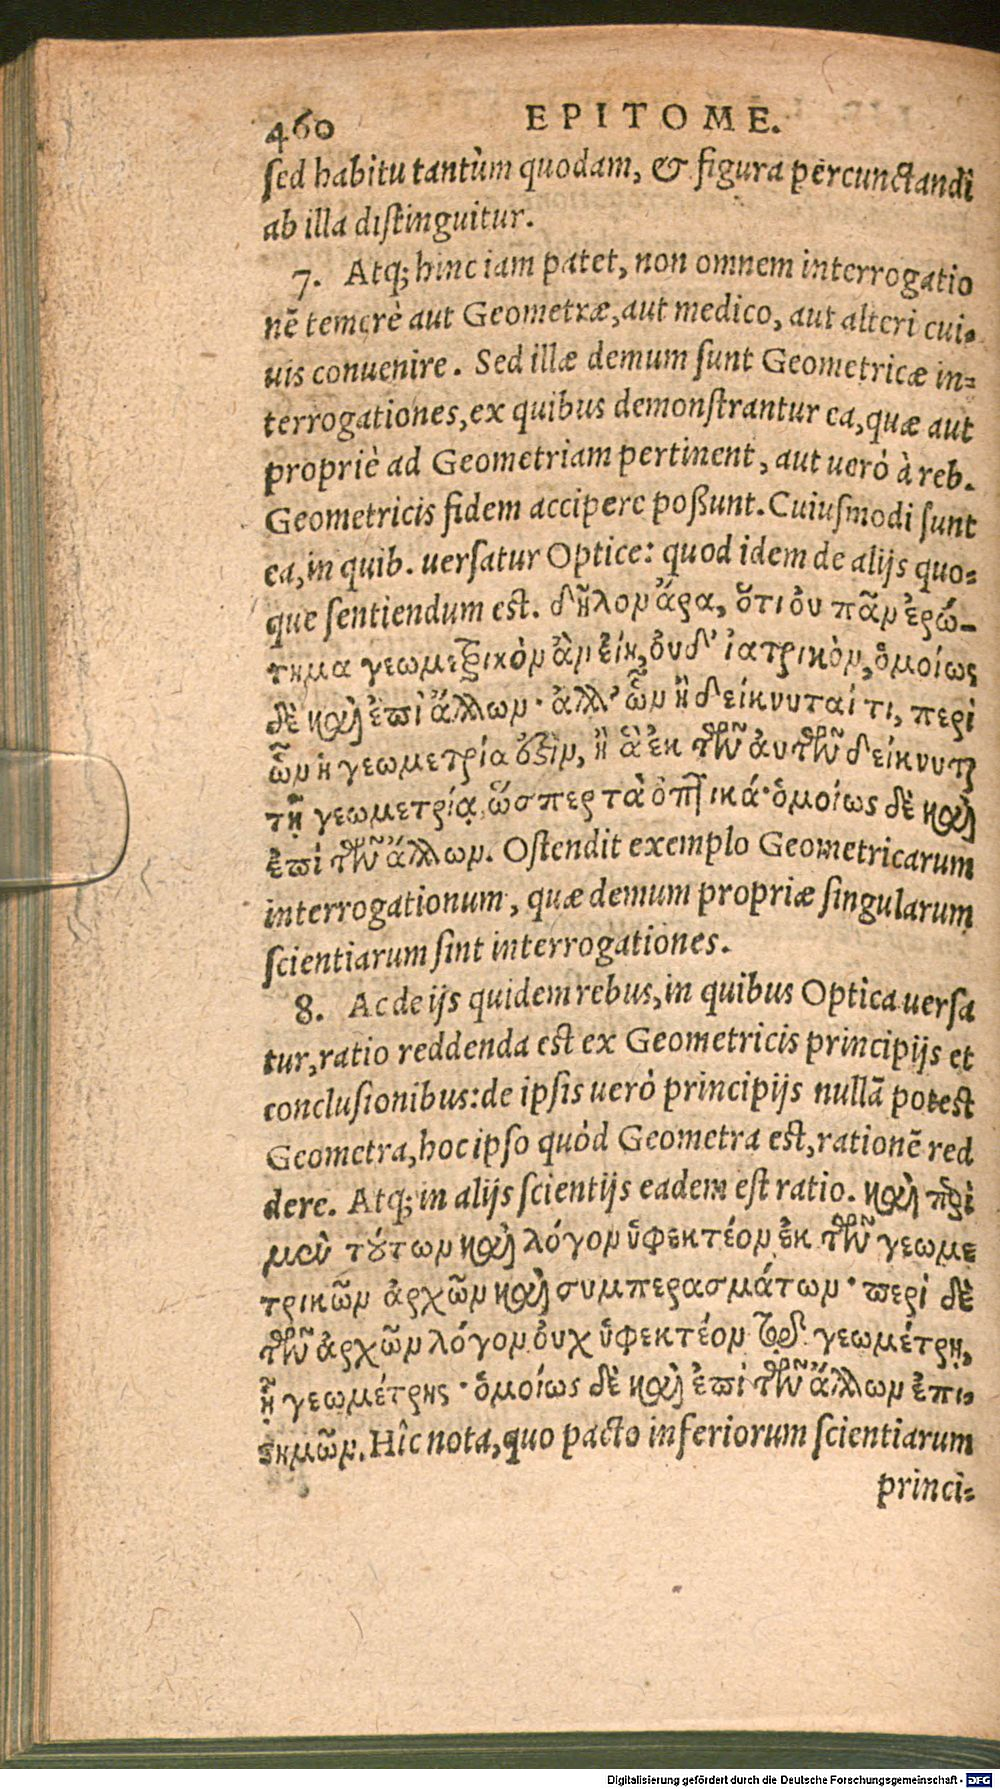 460 EPITOME.
sed habitu tantùm quodam, & figura percunctandi
ab illa distinguitur.
7. Atq; hinc iam patet, non omnem interrogatio
nē temerè aut Geometræ, aut medico, aut alteri cui-
uis conuenire. Sed illæ demum sunt Geometricæ in-
terrogationes, ex quibus demonstrantur ea, quæ aut
propriè ad Geometriam pertinent, aut uerò à reb.
Geometricis fidem accipere poßunt. Cuiusmodi sunt
ea, in quib. uersatur Optice: quod idem de alijs quo-
que sentiendum est. δῆλον ἄρα, ὅτι ὀυ πᾶν ἐρώ-
τημα γεωμετρικὸν ἂν εἴη, ὀυδ' ἰατρικὸν, ὁμοίως
δὲ καὶ ἐπὶ ἄλλων· ἀλλ' ὧν ἢ δείκνυταί τι, περὶ
ὧν ἡ γεωμετρία ὅξιν, ἢ ἃ ἐκ τῶν ἀυτῶν δείκνυτ
τῇ γεωμετρίᾳ ὥσπερ τὰ ὀπτικά· ὁμοίως δὲ καὶ
ἐπὶ τῶν ἄλλων. Ostendit exemplo Geometricarum
interrogationum, quæ demum propriæ singularum
scientiarum sint interrogationes.
8. Ac de ijs quidem rebus, in quibus Optica uersa
tur, ratio reddenda est ex Geometricis principijs et
conclusionibus: de ipsis uerò principijs nullā potest
Geometra, hoc ipso quòd Geometra est, rationē red
dere. Atq; in alijs scientijs eadem est ratio. καὶ πρὶ
μὲν τούτων καὶ λόγον ὑφεκτέον ἐκ τῶν γεωμε
τρικῶν ἀρχῶν καὶ συμπερασμάτων· περὶ δὲ
τῶν ἀρχῶν λόγον ὀυχ ὑφεκτέον τῷ γεωμέτρῃ,
ᾗ γεωμέτρης· ὁμοίως δὲ καὶ ἐπὶ τῶν ἄλλων ἐπι-
στημῶν. Hîc nota, quo pacto inferiorum scientiarum
princi-
Digitalisierung gefördert durch die Deutsche Forschungsgemeinschaft - DFG